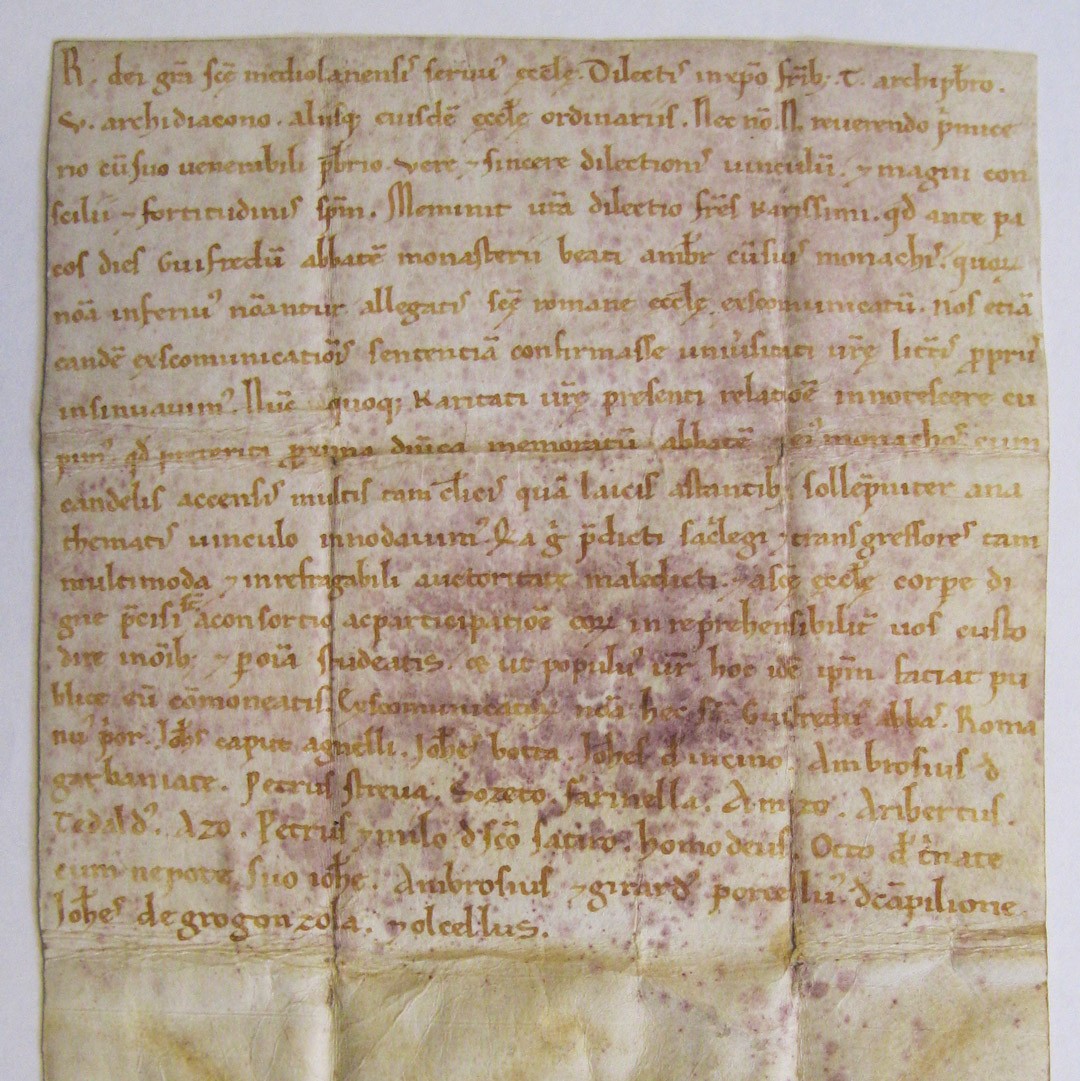 R. dei gr̄a sc̄e mediolanensis seruus ęccl̄ę. Dilectis in xp̄o fr̄ib; .T. archipb̄ro.
V. archidiacono. aliisq; eiusdē ęccl̄ę ordinariis. Nec nō .N. reuerendo p̄mice
rio cū suo uenerabili pb̄rio. vere ⁊ sincere dilectionis uinculū. ⁊ magni con
scilii ⁊ fortitudinis sp̄m. Meminit ur̄a dilectio fr̄es karissimi. qd̄ ante pa
cos dies Guifredū abbatē monasterii beati ambr̄ cū suis monachis. quoꝝ
nōa inferius nōantur allegatis sc̄ę romane ęccl̄ę exscomunicatū. nos etiā
eandē ęxscomunicatiōis sententiā confirmasse uniu̓sitati ur̄ę litt̄is ꝓpriis
insinuauimꝰ. Nūc quoq; karitati ur̄ę presenti relatiōe innotescere cu
pimꝰ. qd̄ preteriti ꝓxima dn̄ica memoratū abbatē ⁊ eiꝰ monachos cum
candelis accensis multis tam cl̄icis quā laicis astantib; sollēpniter ana
thematis uinculo innodauimꝰ. Q̄a g̊ p̄dicti sac̓legi ⁊ transgressores tam
multimoda ⁊ inrefragabili auctoritate maledicti. ⁊ a sc̄ę ęccl̄ę corpe di
gne p̄cisi st̄ a consortio ac participatiōe eoꝝ inreprehensibilit̄ uos custo
dire in ōib; ⁊ ꝑ oīa studeatis. ⁊ ut populus ur̄ hoc idē ip̄m faciat pu
blice eū cōmoneatis. Exscomunicatoꝝ nōa hec st̄. Guifredus abbas. Roma
nus p̓or. Joh̄s caput agnelli. Joh̄es botta. Joh̄es d̄ iucino. Ambrosius d̄
garbaniate. Petrus streua. Gozeto. Farinella. Amizo. Aribertus.
Tedaldꝰ. Azo. Petrus ⁊ milo d̄ sc̄o satiro. homodeus. Otto d̄ c̓nate
cum nepote suo ioh̄e. Ambrosius ⁊ girardꝰ porcellus. d̄ cāpilione
Joh̄es de grogonzola. ⁊ olcellus.